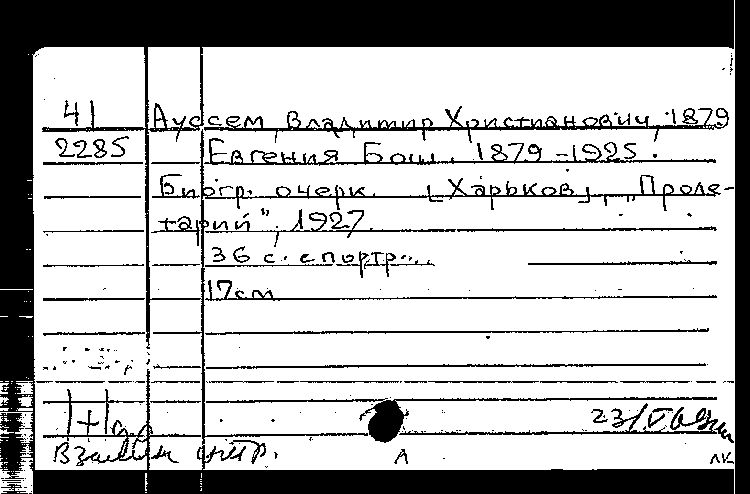 41 Ауссем, Владимир Христианович, 1879
2285 Евгения Бош. 1879-1925.
Биогр. очерк. [Харьков], "Проле-
тарий", 1927.
36 с. с портр.
17см
1+1
23/VI
A